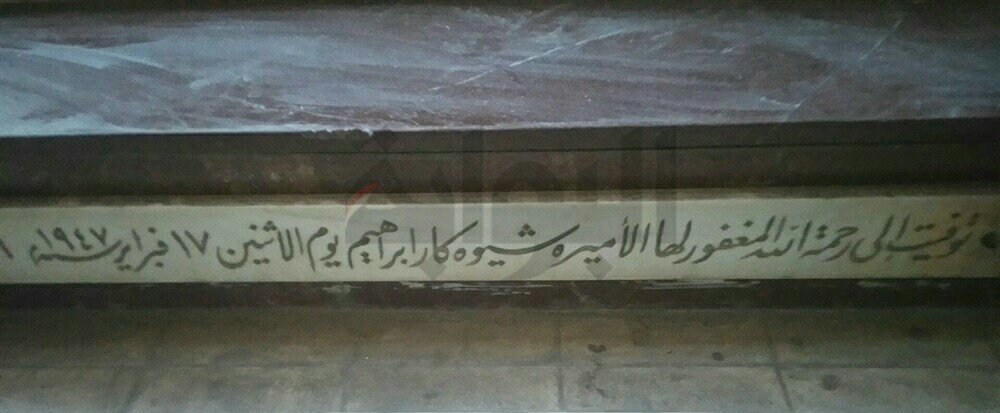 توفيت إلى رحمة الله المغفور لها الأميره شيوه كار ابراهيم يوم الاثنين ١٧ فبراير سنة ١٩٤٧
البوابة